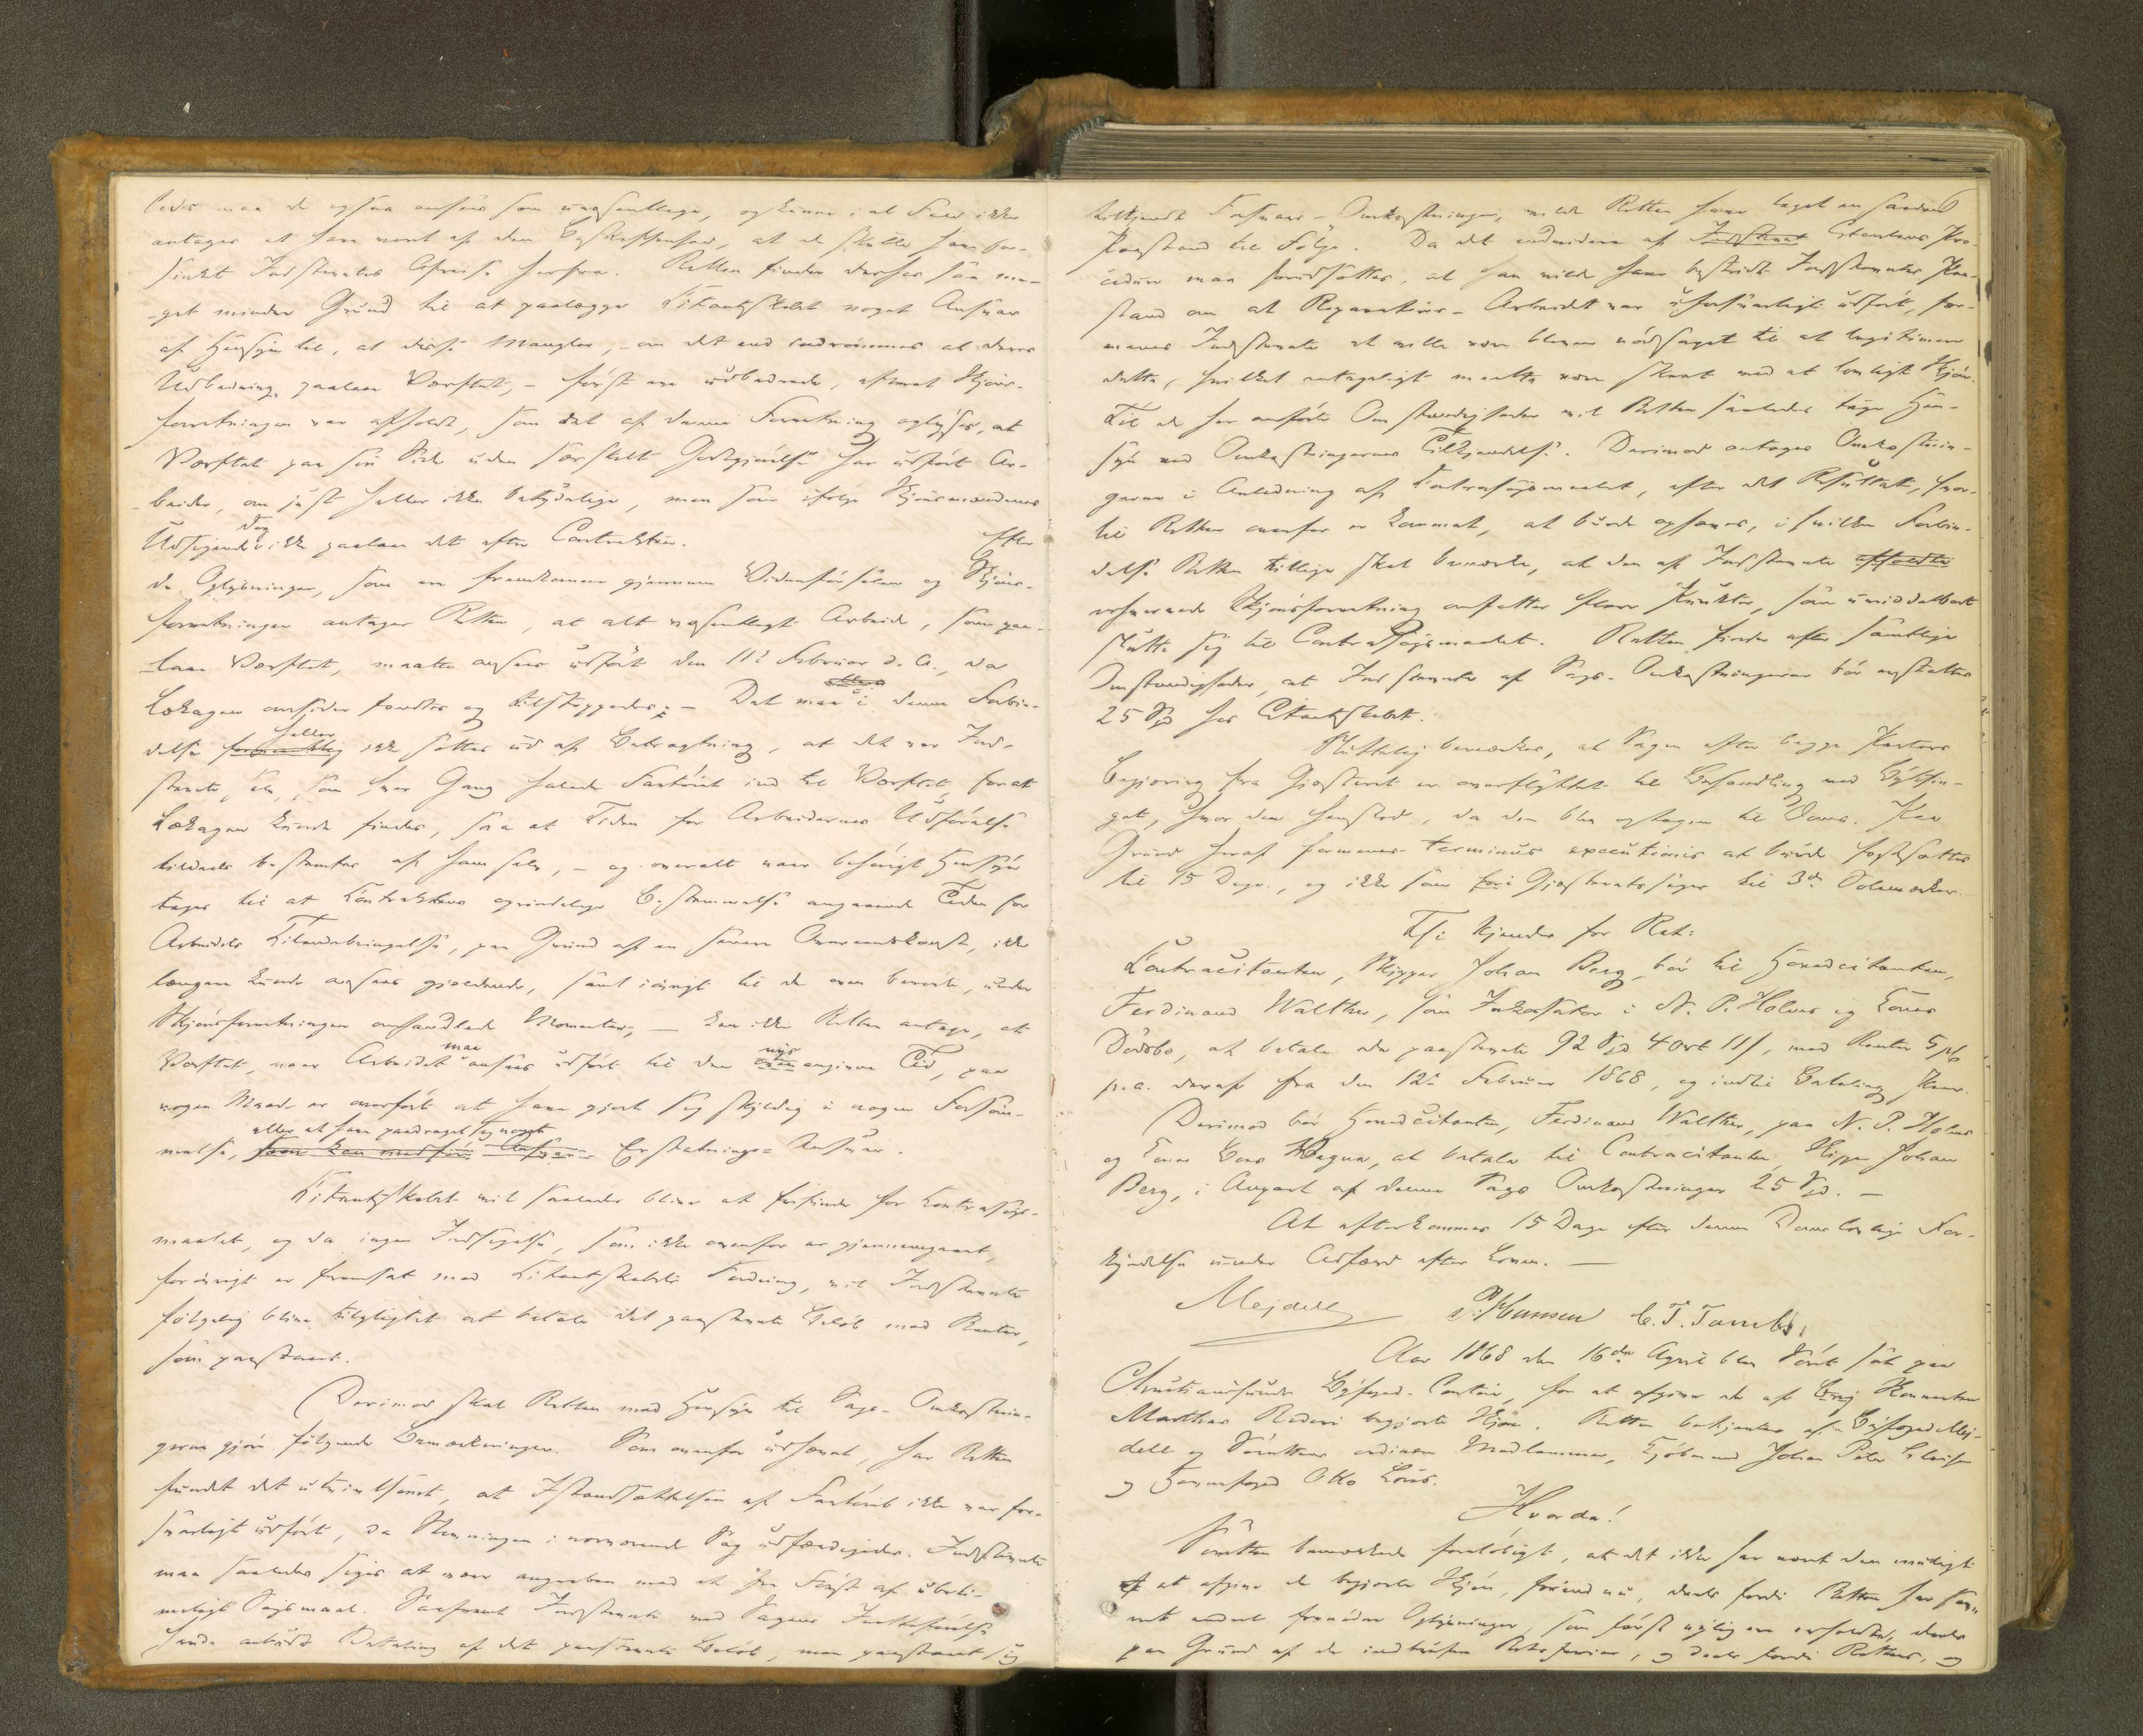 ledes maa de ogsaa ansees som uvæsentlige, og kunne i al Fald ikke
antages at have været af den Beskaffenhed, at de skulde have for-
sinket Indstevntes Afreise herfra. Retten finder derfor saa me-
-get mindre Grund til at paalægge Citantskabet noget Ansvar
af Hensyn til, at disse Mangler, - om det end indrømmes at deres
Udbedring paalaa Værftet, - først ere udbedrede, efterat Skjøns-
forretningen var afholdt, som det af denne Forretning oplyses, at
Værftet paa sin Side uden særskilt Godtgjørelse har udført Ar-
-beider, om just heller ikke betydelige, men som ifølge Skjønsmændenes
Udsigende dog ikke paalaa det efter Contrakten. Efter
de Oplysninger, som ere fremkomne gjennem Vidneførselen og Skjøns-
forretningen antager Retten, at alt væsentligt Arbeide, som paa-
laa Værftet, maatte ansees udført den 11te Februar d. A., da
Lækagen omsider fandtes og tilstoppedes; - Det maa i denne Forbin-
delse heller ikke sættes ud af Betragtning, at det var Ind-
stevnte selv, som hver Gang halede Fartøiet ind til Værftet, forat
Lækagen kunde findes, saa at Tiden for Arbeidernes Udførelse
tildeels bestemtes af ham selv, - og overalt naar behørigt Hensyn
tages til at Kontraktens oprindelige Bestemmelse angaaende Tiden for
Arbeidets Tilendebringelse, paa Grund af en senere Overeenskomst, ikke
længere kunde ansees gjældende, samt iøvrigt til de oven berørte, under
Skjønsforretningen omhandlede Momenter, - kan ikke Retten antage, at
Værftet, naar Arbeidet maa ansees udført til den nys angivne Tid, paa
nogen Maade er overført at have gjort sig skyldig i nogen Forsøm-
melse, eller at have paadraget sig noget Erstatnings-Ansvar.
Citantskabet vil saaledes blive at frifinde for Kontrasøgs-
maalet, og da ingen Indsigelse, som ikke ovenfor er gjennemgaaet,
forøvrigt er fremsat mod Citantskabets Fordring, vil Indstevnte
følgelig blive tilpligtet at betale det paastevnte Beløb med Renter,
som paastaaet.
Derimod skal Retten med Hensyn til Sags-Omkostnin-
gerne gjøre følgende Bemærkninger. Som ovenfor udhævet, har Retten
fundet det utvivlsomt, at Istandsættelsen af Fartøiet ikke var for-
svarligt udført, da Stevningen i nærværende Sag udfærdigedes. Indstevnte
maa saaledes siges at være angreben med et fra Først af ubeti-
meligt Søgsmaal. Saafremt Indstevnte ved Sagens Indtrædelse
havde anbudt Betaling af det paastevnte Beløb, men paastaaet sig
tilkjendt Forsvars-Omkostninger, vilde Retten have taget en saadan
Paastand til Følge. Da det endvidere af Citantens Pro-
cedure maa forudsættes, at han vilde have bestridt Indstevntes Paa-
stand om at Reparations-Arbeidet var uforsvarligt udført, for-
menes Indstevnte at ville være bleven nødsaget til at legitimere
dette, hvilket antageligt maatte være skeet ved et lovligt Skjøn.
Til de her anførte Omstændigheder vil Retten saaledes tage Hen-
syn ved Omkostningernes Tilkjendelse. Derimod antages Omkostnin-
gerne i Anledning af Kontrasøgsmaalet, efter det Resultat, hvor-
til Retten ovenfor er kommet, at burde ophæves, i hvilken Forbin-
delse Retten tillige skal bemærke, at den af Indstevnte
erhvervede Skjønsforretning omfatter flere Punkter, som umiddelbart
slutte sig til Contrasøgsmaalet. Retten finder efter samtlige
Omstændigheder, at Indstevnte af Sags-Omkostningerne bør erstattes
25 Spd hos Citantskabet.
Sluttelig bemærkes, at Sagen efter begge Parters
Begjæring fra Gjesteret er overflyttet til Behandling ved Bythin-
get, hvor den henstod, da den blev optagen til Doms. Paa
Grund heraf formenes terminus executionis at burde fastsættes
til 15 Dage, og ikke som i Gjesteretssager til 3de Solemærker.
Thi kjendes for Ret:
Contracitanten, Skipper Johan Berg, bør til Hovedcitanten,
Ferdinand Walther, som Inkassator i N. P. Holms og Sønns
Dødsbo, at betale de paastevnte 92 Spd 4 Ort 11 s, med Renter 5 pCt
p.a. deraf fra den 12te Februar 1868, og indtil Betaling skeer.
Derimod bør Hovedcitanten, Ferdinand Walther, paa N. P. Holms
og Sønns Boes Vegne, at betale til Contracitanten, Skipper Johan
Berg, i Anpart af denne Sags Omkostninger 25 Spd. -
At efterkommes 15 Dage efter denne Doms lovlige For-
kyndelse under Adfærd efter Loven. -
Mejdell P. Hansen C. T. Tambs.
Aar 1868 den 16de April blev Søret sat paa
Christianssunds Byfoged-Contoir for at afgive de af Brig
Marthas Rederi begjærte Skjøn. Retten betjentes af Byfoged Mej-
dell og Sørettens ordinære Medlemmer, Kjøbmand Johan Peter Clausen
og Havnefoged Otto Lous.
Hvorda!
Søretten bemærkede foreløbigt, at det ikke har været den muligt
at afgive de begjærte Skjøn, førend nu, deels fordi Retten har sav-
net endeel fornødne Oplysninger, som først nylig ere erholdte, deels
paa Grund af de indtrufne Retsferier, og deels fordi Rettens, og